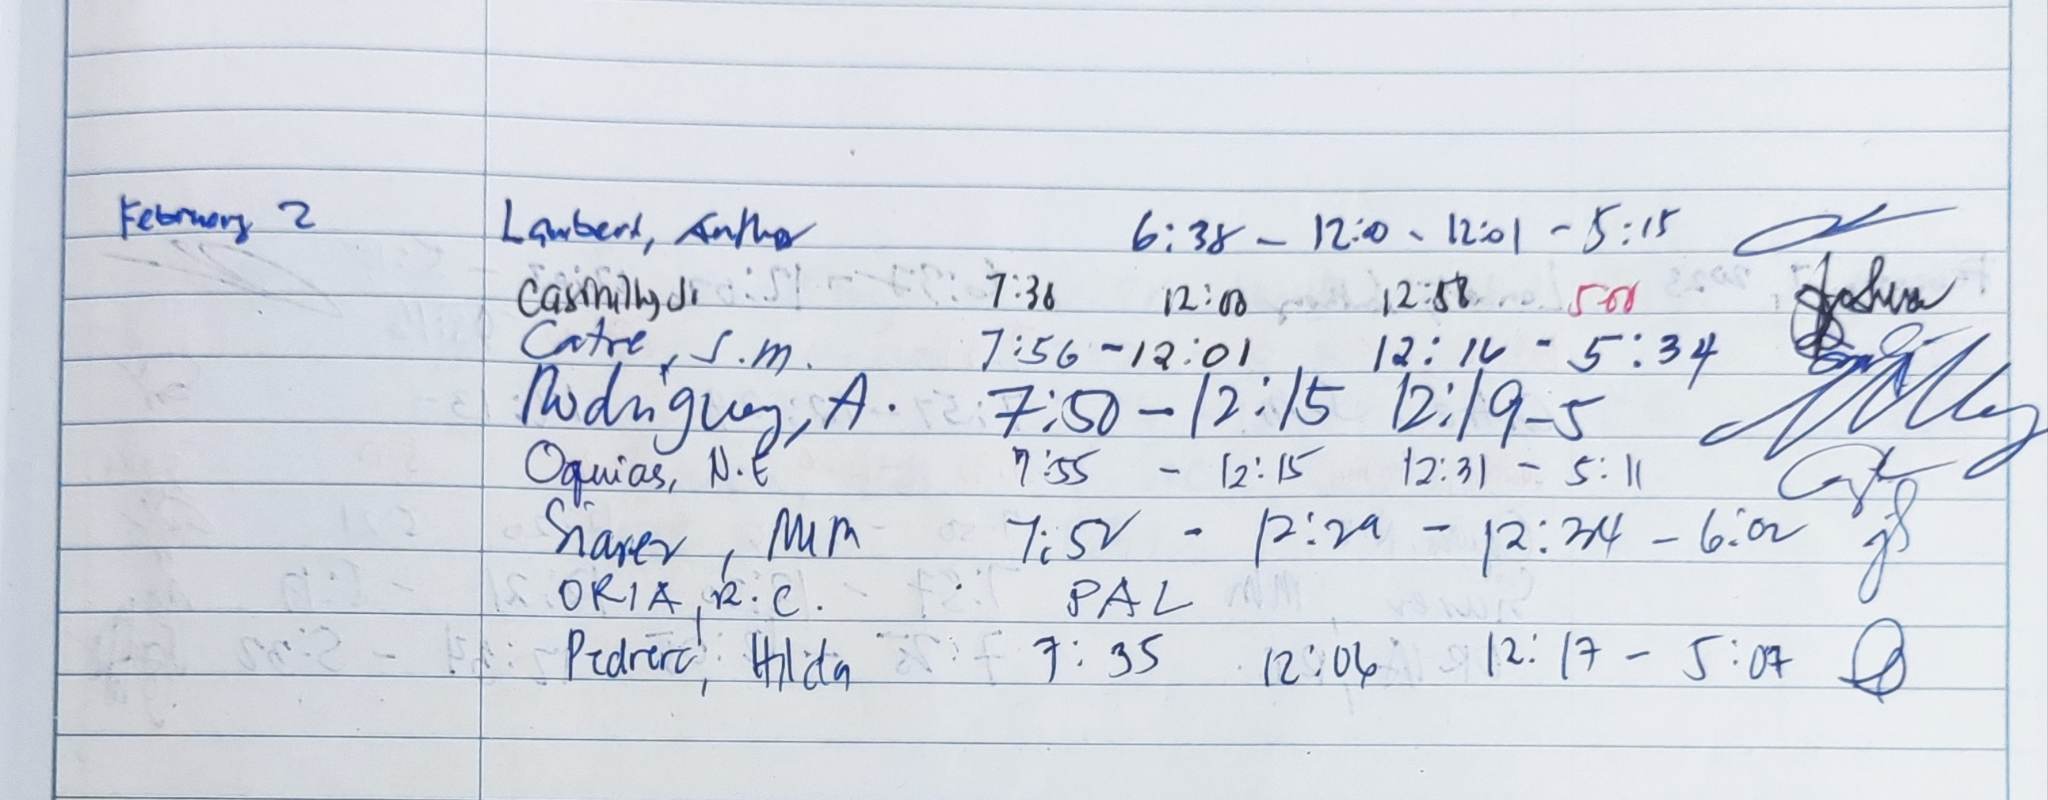 February 2 Lambert, 6:38 - 12:00 - 12:01 - 5:15
7:36 12:00 12:58 5:00 Joshua
Catre, S.M. 7:56 - 12:01 12:16 - 5:34
Rodriguez, A. 7:50 - 12:15 12:19 - 5
Oquias, N.E 7:55 - 12:15 12:31 - 5:11
Siarez, MM 7:52 - 12:29 - 12:34 - 6:02
ORIA, R.C. PAL
Pedrera, Hilda 7:35 12:06 12:17 - 5:07